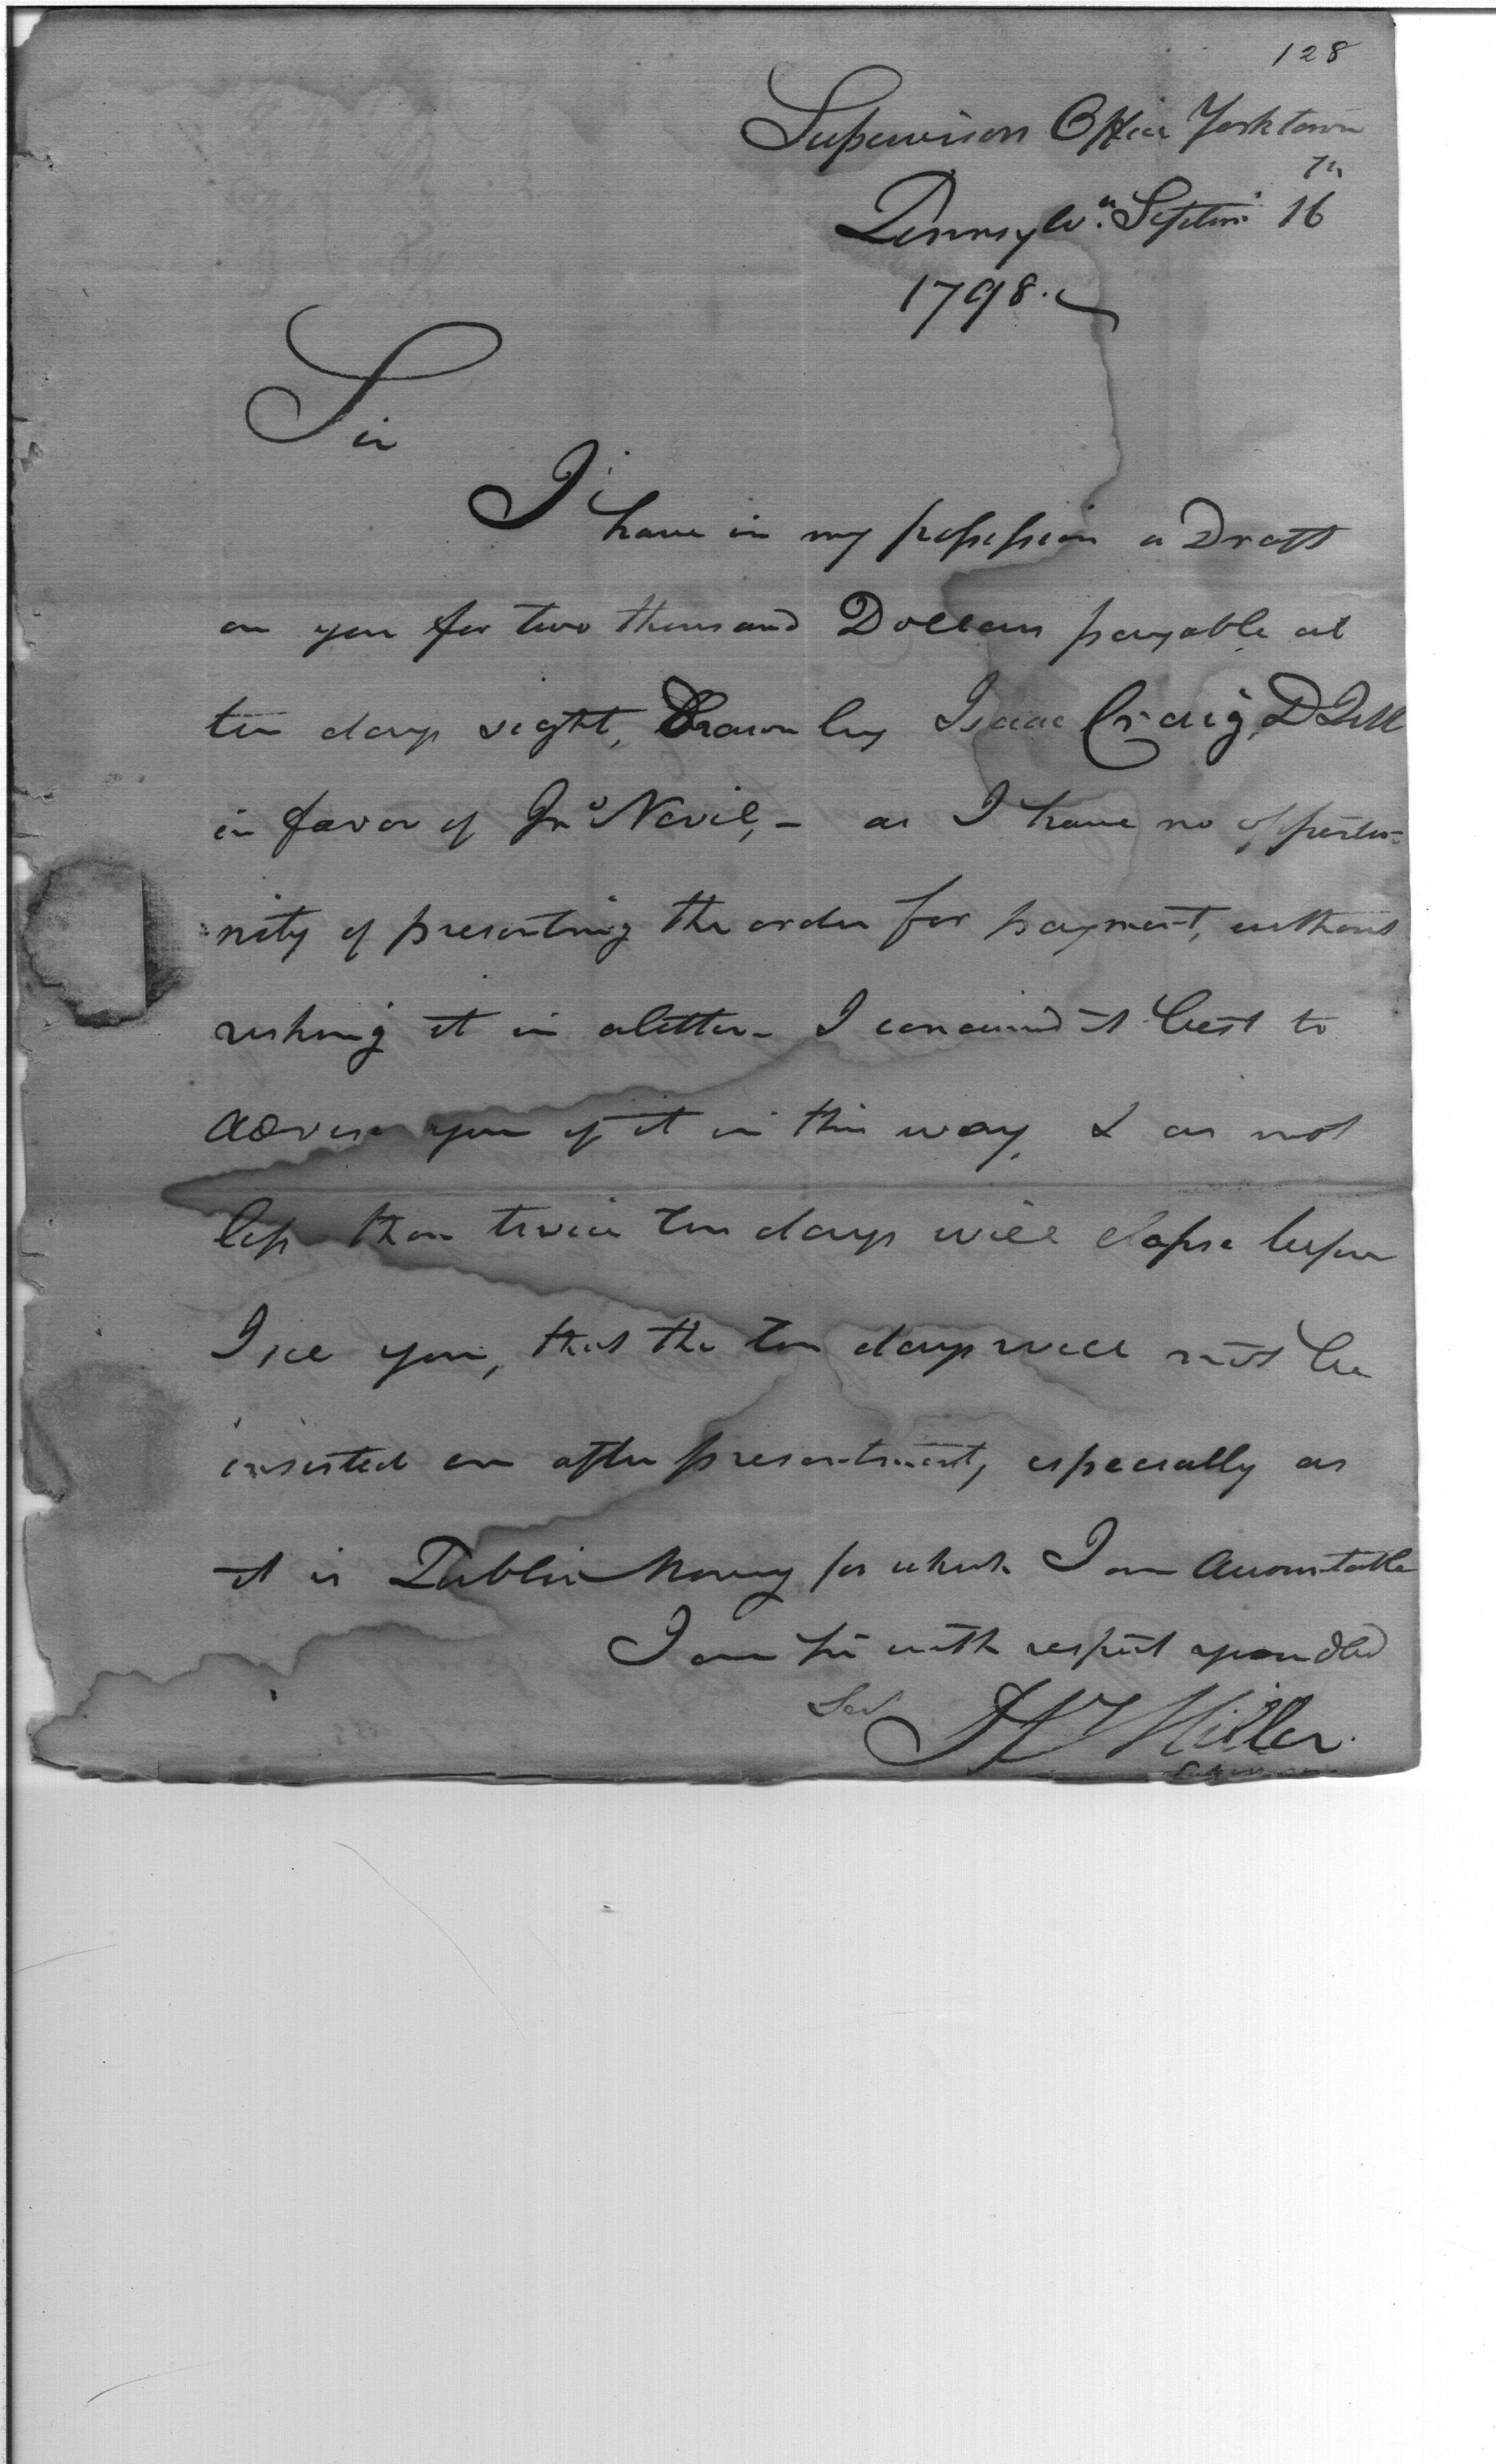 128
Supervisors Office Yorktown
Pennsylva. Septem. 16th
1798.
Sir
I have in my possession a Draft
on you for two thousand Dollars payable at
ten days sight, Drawn by Isaac Craig, D Q M
in favor of Jno Nevil, - as I have no opportu-
nity of presenting the order for payment, without
risking it in a letter - I conceived it best to
advise you of it in this way, & as not
less than twice ten days will elapse before
I see you, that the ten days will not be
insisted on after presentment, especially as
it is Public Money for which I am accountable
I am Sir with respect your obed
Ser H Miller
Supervisor